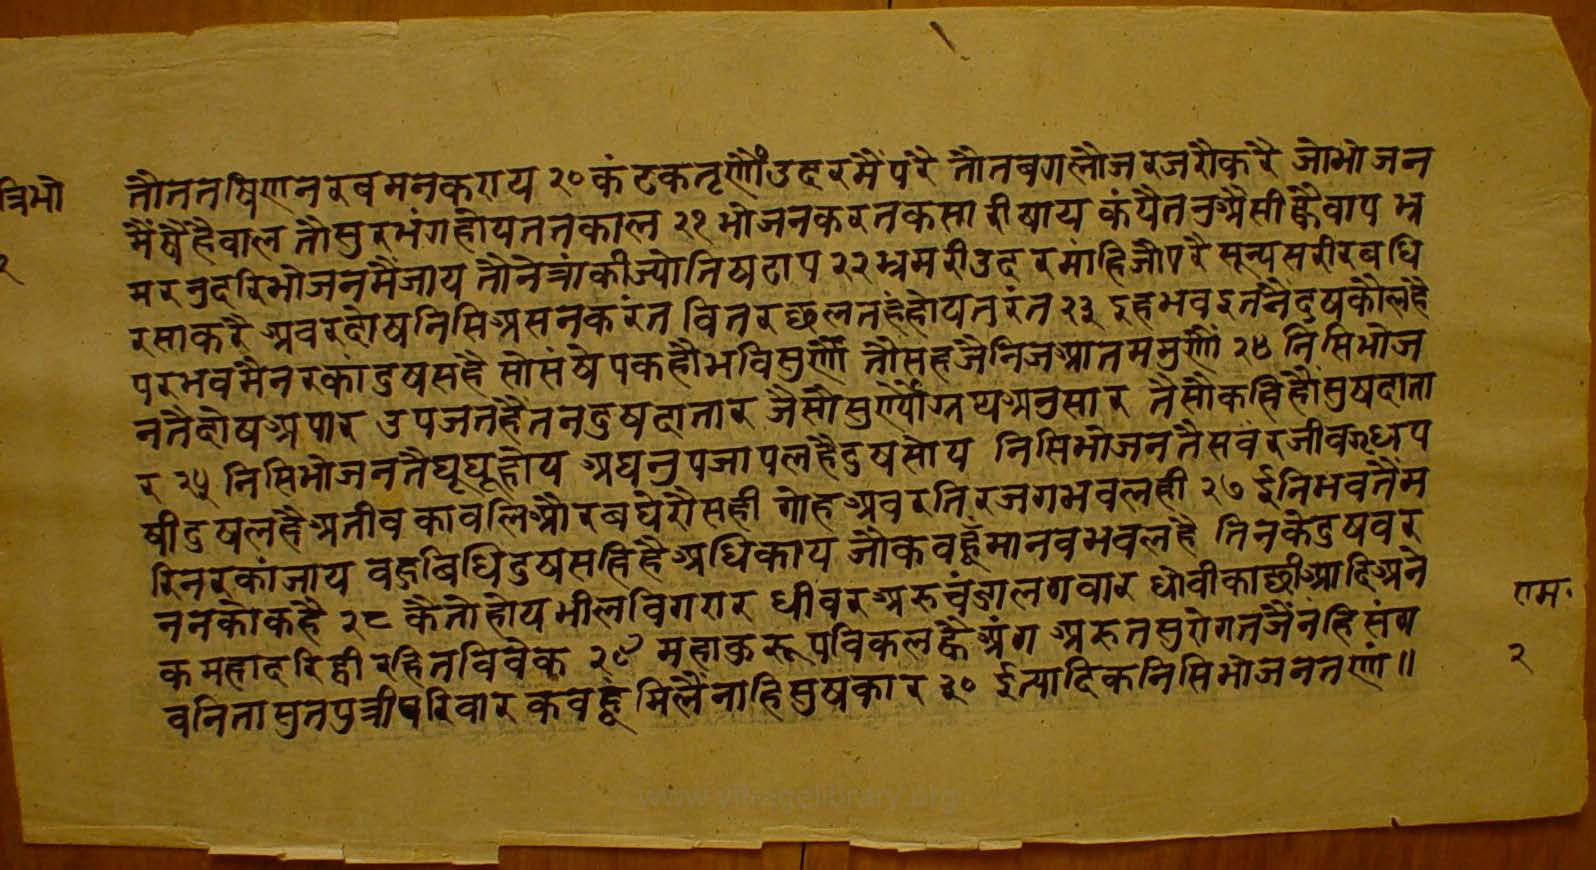 त्रिभो
२
तौततषिणनरवमनकराय २० कंटकतृणौंउदरमैपरै तौतबगलौजरजरौकरै जोभोजन
मैंषैंहैवाल तौसुरभंगहोयततकाल २१ भोजनकरतकसारीषाय कंपैतनुअैसीह्वैवाप भ्र
मरनुदरिभोजनमैंजाय तौनेत्रांकीज्योतिषटाप २२ भ्रमरीउदरमांहिजौपरै सून्यसरीरबधि
रसाकरै अवरदोषनिसिअसनकरंत वितरछलतहंहोयतुरंत २३ इहभवइतंनैदुषकौलहै
परभवमैनरकांदुषसहै सोसंषेपकहौभविसुणौं तौसहजैनिजआतममुणौं २४ निसिभोज
नतैदोषअपार उपजतहैतनदुषदातार जैसोसुण्यौंग्रप्यअनुसार तैसोकहिहौंसुषदाता
र २५ निसिभोजनतैघूघूहोय अघनुपजापलहैदुषसोय निसिभोजनतैसवरजीवगृध्रप
षीदुषलहैअतीव कावलिऔरबघेरौसही गोहअवरतिरजगभवलही २७ ईनिभवतैम
रिनरकांजाय वहुबिधिदुषसहिहैअधिकाय जोकवहूँमानवभवलहै तिनकेदुषवर
ननकोकहै २८ कैतोहोयभीलविगरार धीवरअरुचंडालगवार धोवीकाछीआदिअने
कमहादरिद्वीरहितविवेक २९ महाकुरूपविकलह्वैअंग अरुतसुरोगतजैंनहिसंग
वनितासुतपुत्रीपरिवार कवहूमिलैंनाहिसुषकार ३० ईत्यादिकनिसिभोजनतणां॥
राम॰
२
www.yifragelibrary.org